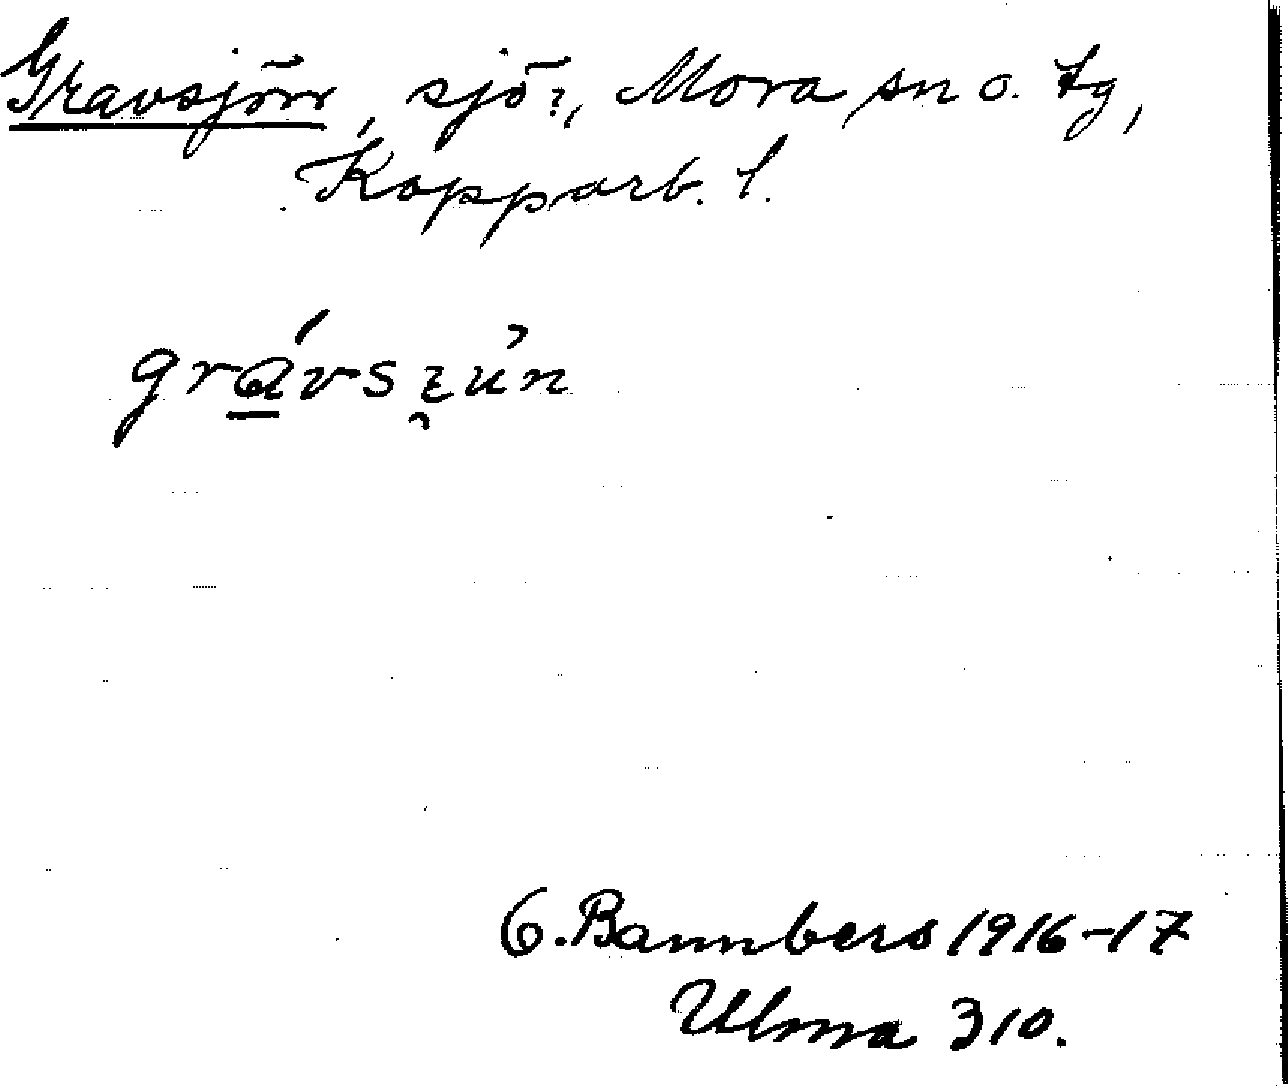 Gravsjön, sjö?, Mora sn o. tg,
Kopparb. l.
O. Bannbers 1916-17
Ulma 310.